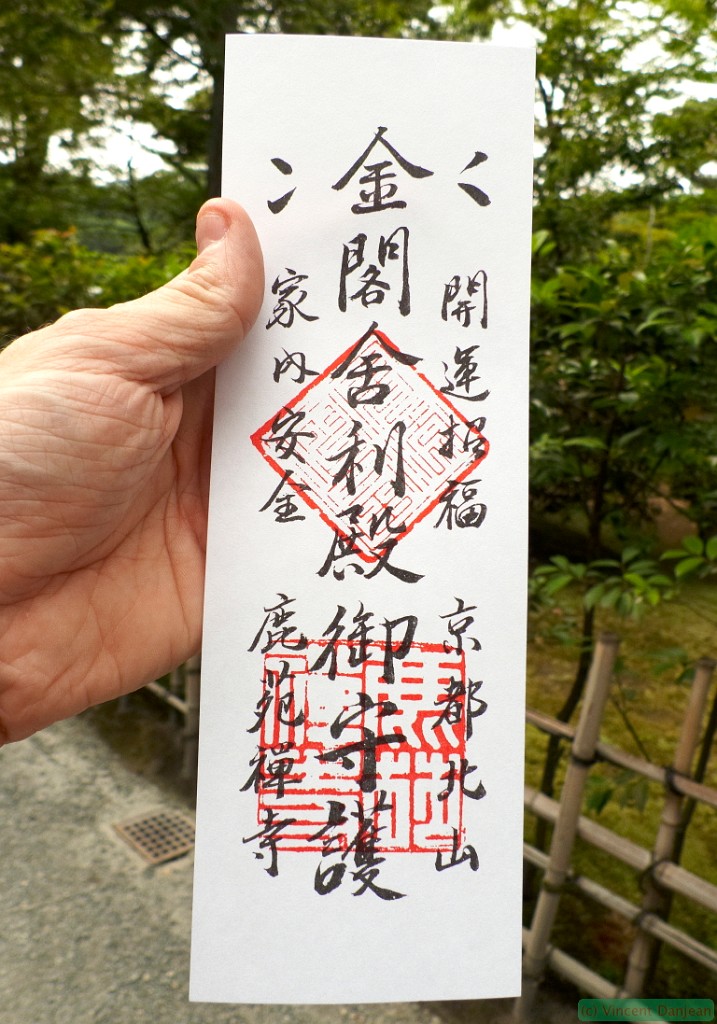 開運招福 京都北山
金閣舎利殿御守護
家内安全 鹿苑禅寺
(c) Vincent Danjean